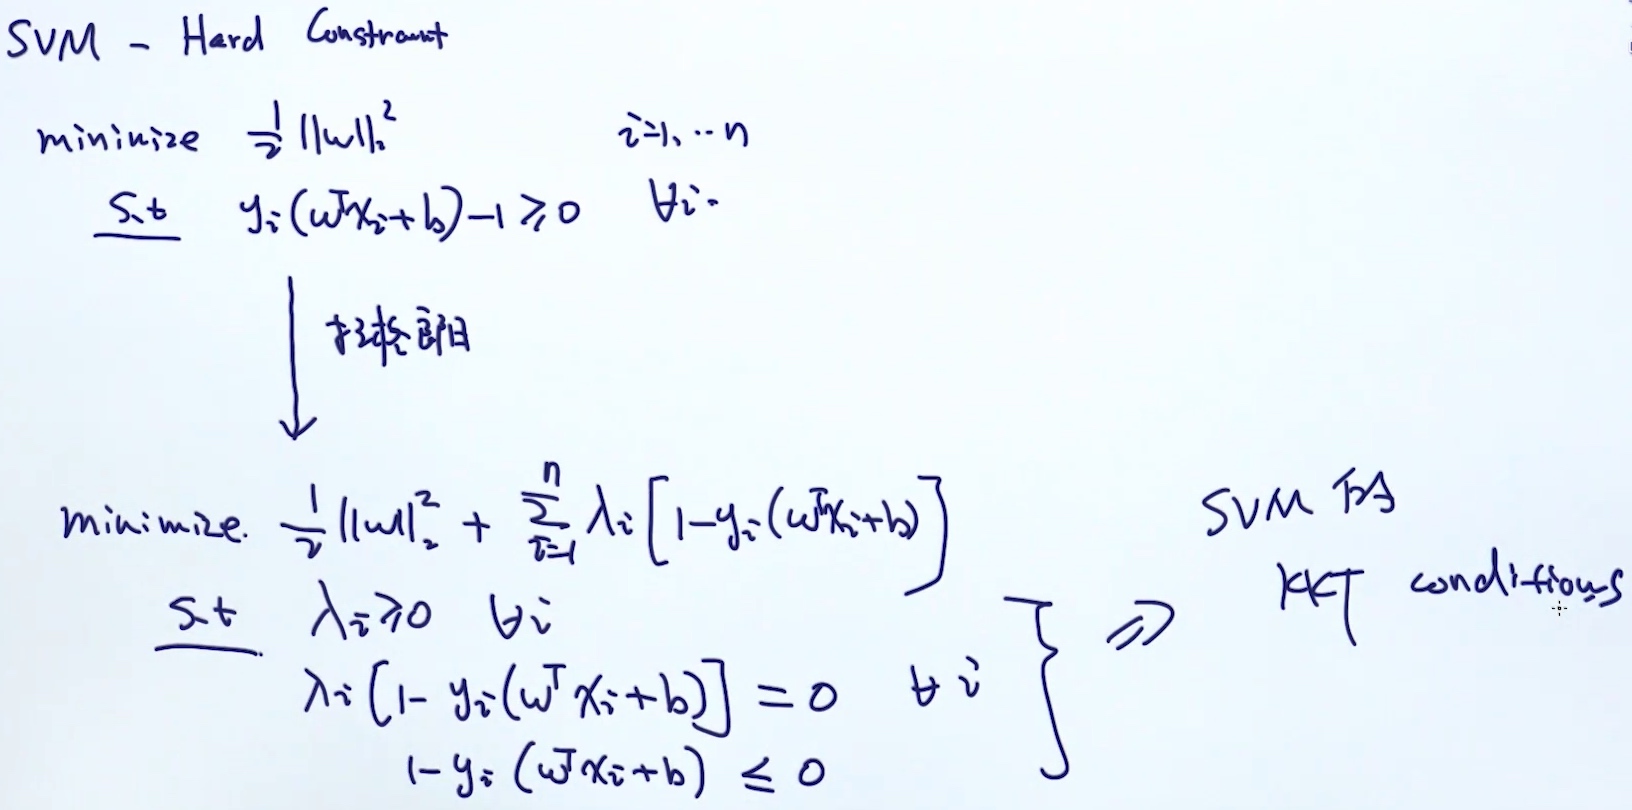 SVM - Hard Constraint
minimize ½ ||w||₂² i=1, ··n
S.t yᵢ(wᵀxᵢ+b)-1 ≥ 0 ∀i.
拉格朗日
minimize. ½ ||w||₂² + ∑ᵢ₌₁ⁿ λᵢ[1-yᵢ(wᵀxᵢ+b)]
S.t λᵢ≥0 ∀i
λᵢ[1- yᵢ(wᵀxᵢ+b)] = 0 ∀i
1- yᵢ(wᵀxᵢ+b) ≤ 0
⇒ SVM 的
KKT conditions